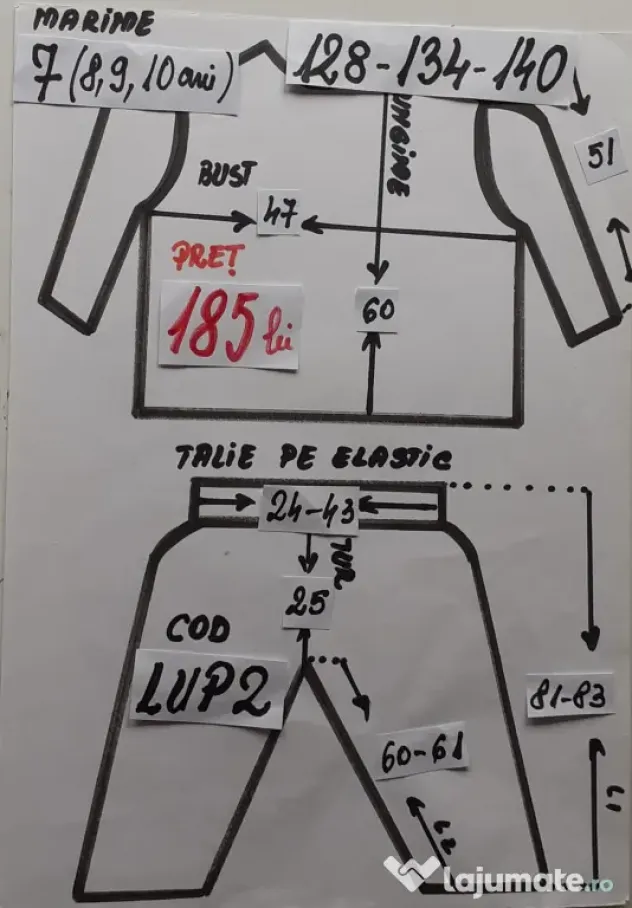 MARIME
7 (8,9,10 ani)
128-134-140
51
BUST
47
PREȚ
185 lei
60
TALIE PE ELASTIC
24-43
TUR
25
COD
LUP2
81-83
60-61
L1
L2
lajumate.ro